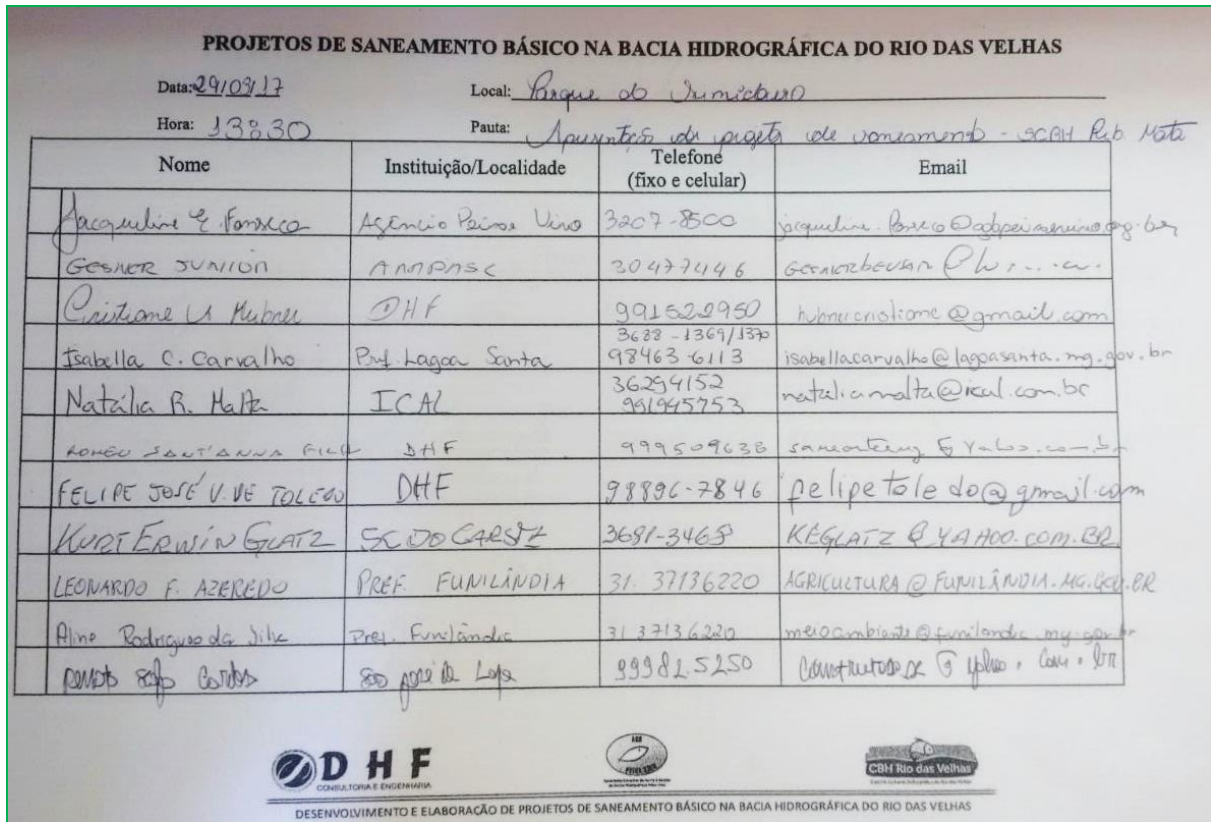 PROJETOS DE SANEAMENTO BÁSICO NA BACIA HIDROGRÁFICA DO RIO DAS VELHAS
Data: 29/09/17 Local: Parque do Sumidouro
Hora: 13:30 Pauta: Apresentação do projeto de saneamento - SCBH Rib. Mata
Nome Instituição/Localidade Telefone (fixo e celular) Email
Jacqueline E. Fonseca Agência Peixe Vivo 3207-8500
GESNER JUNIOR 30477446
Cristiane Hubner DHF 991522950 @gmail.com
3688-1369/1370
Isabella C. Carvalho Pref. Lagoa Santa 98463-6113 isabellacarvalho@lagoasanta.mg.gov.br
36294152
Natália R. Malta ICAL 991945753 nataliamalta@ical.com.br
ROMEU SANT'ANNA FILHO DHF 999509638
FELIPE JOSÉ V. DE TOLEDO DHF 98896-7846 felipetoledo@gmail.com
KURT ERWIN GLATZ SC DO CARSTE 3681-3468 KEGLATZ@YAHOO.COM.BR
LEONARDO F. AZEREDO PREF. FUNILÂNDIA 31. 37136220 AGRICULTURA@FUNILÂNDIA.MG.GOV.BR
Aline Rodrigues da Silva Pref. Funilândia 31 37136220 meioambiente@funilandia.mg.gov.br
São José da Lapa 99982.5250
DHF CONSULTORIA E ENGENHARIA
AGB PEIXE VIVO
CBH Rio das Velhas
DESENVOLVIMENTO E ELABORAÇÃO DE PROJETOS DE SANEAMENTO BÁSICO NA BACIA HIDROGRÁFICA DO RIO DAS VELHAS